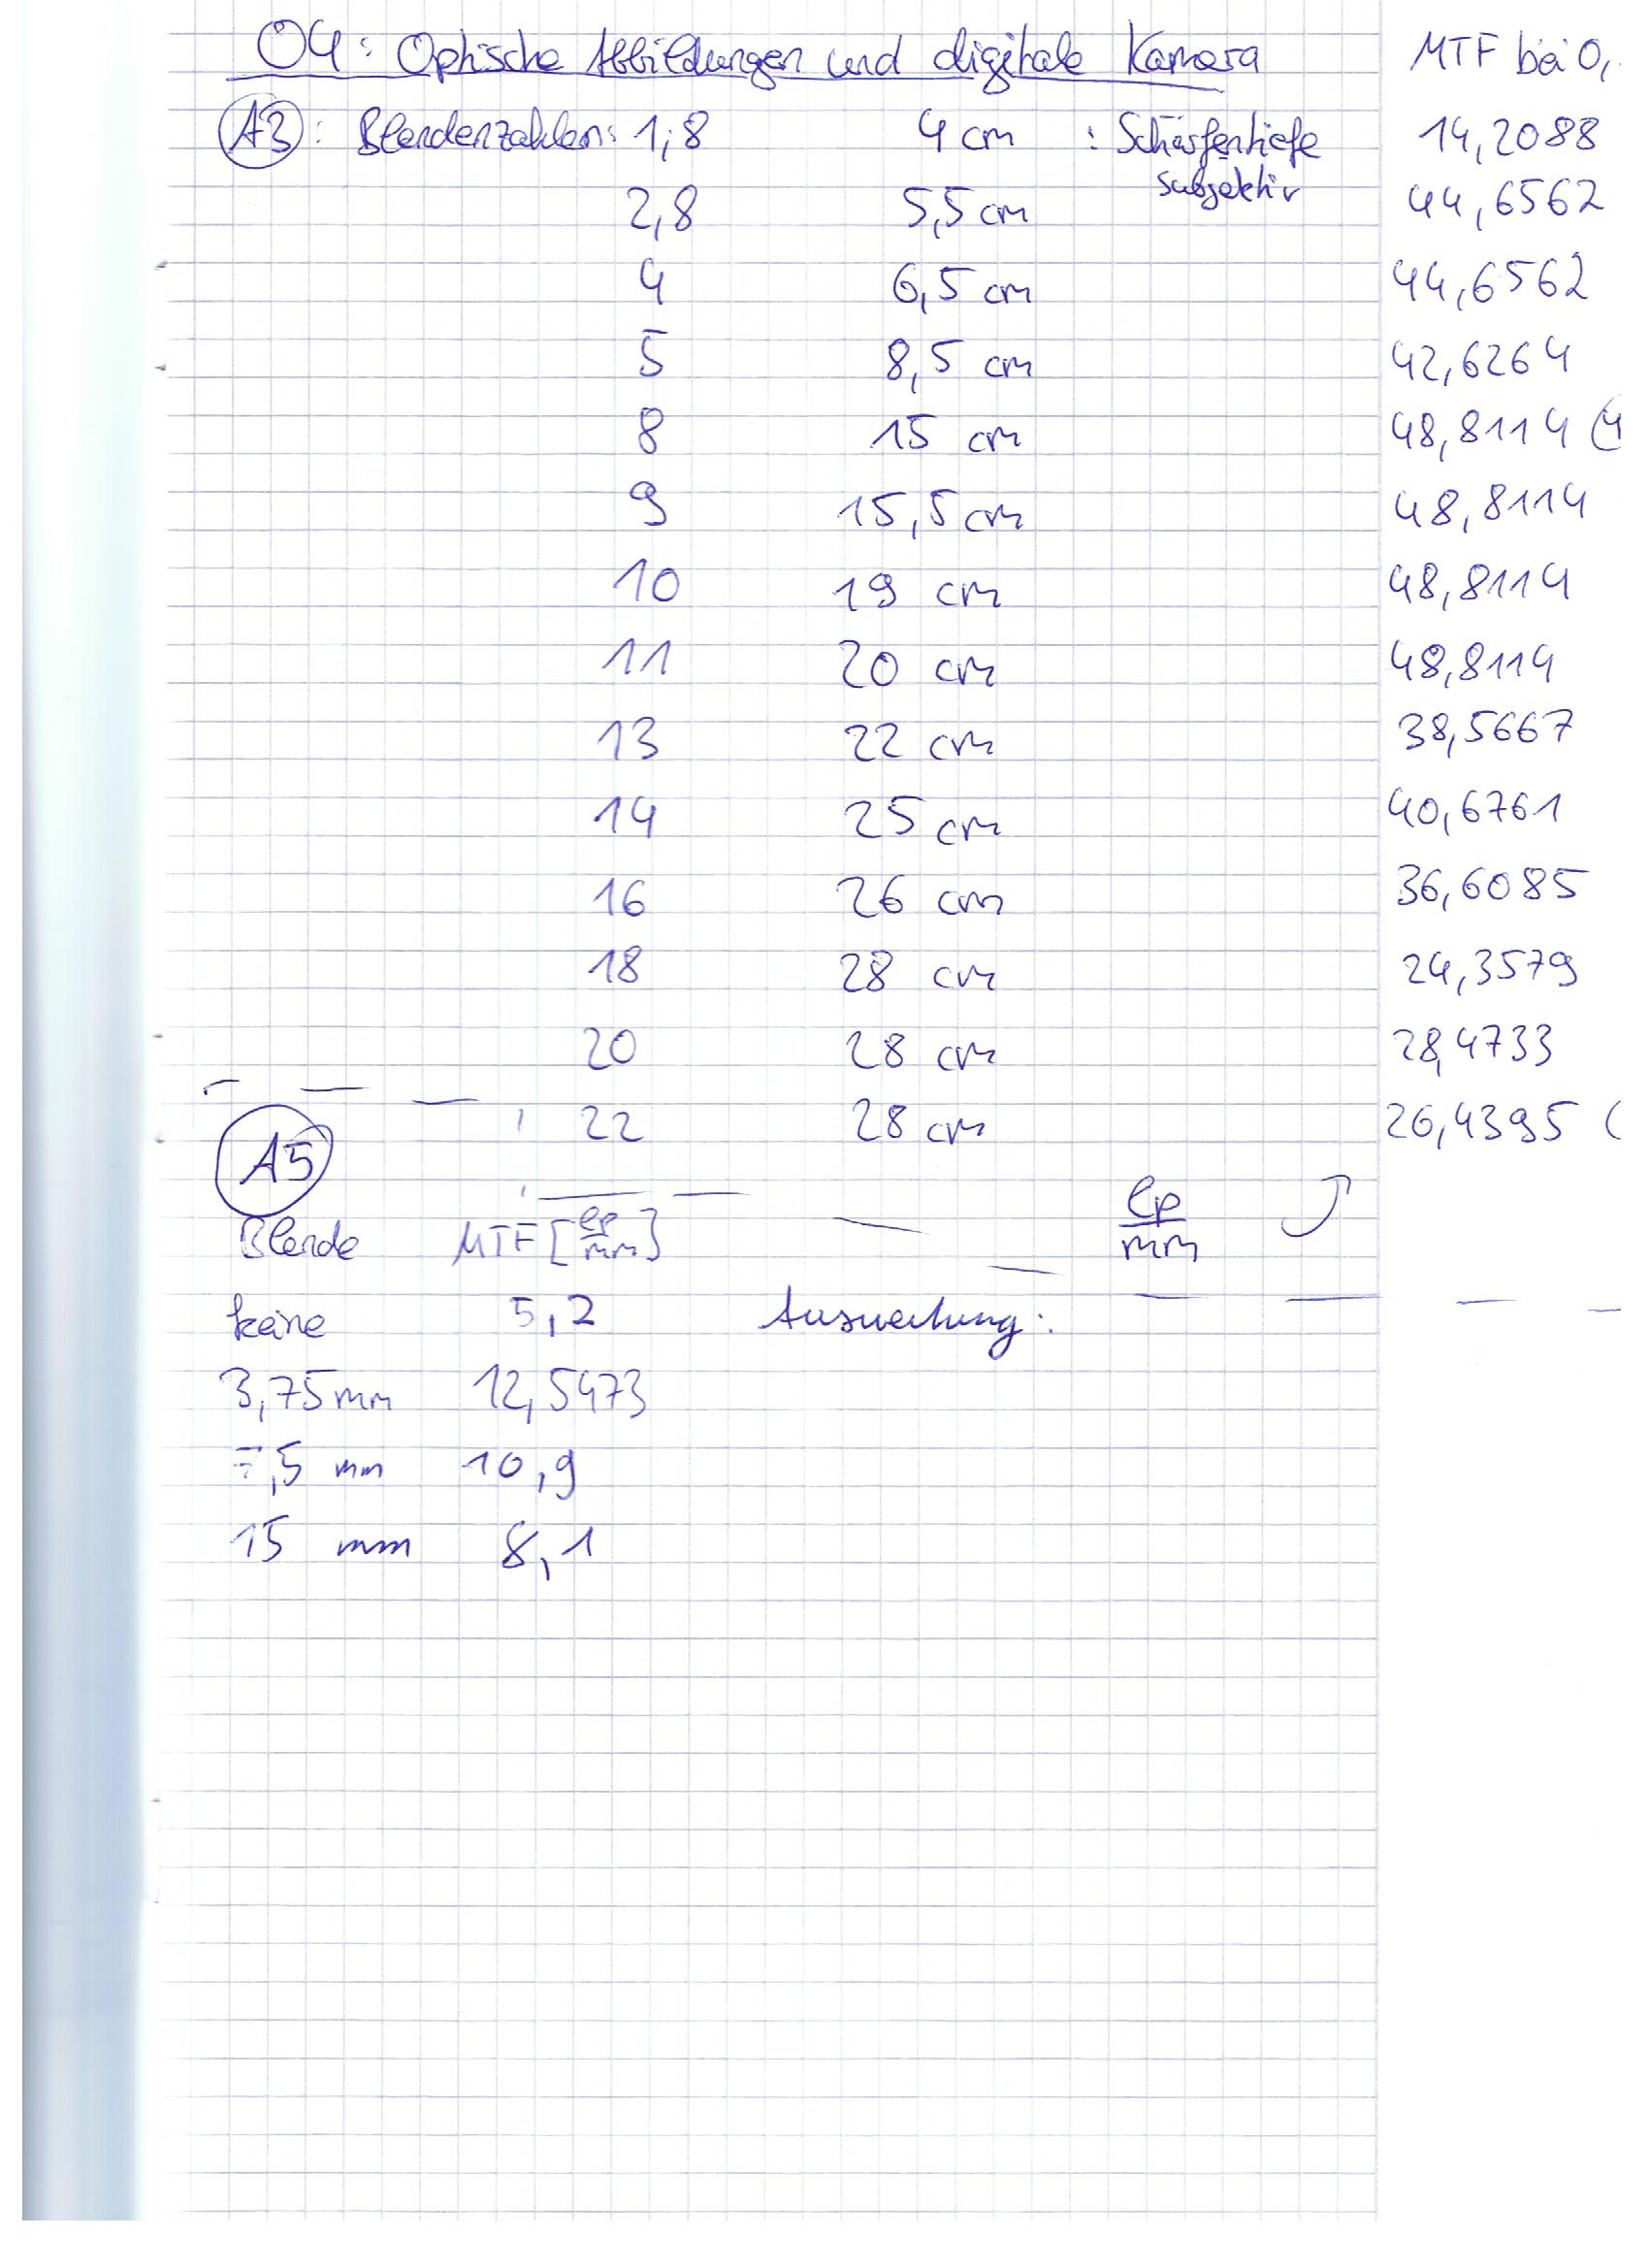 O4: Optische Abbildungen und digitale Kamera MTF bei 0,
A3: Blendenzahlen: 1,8 4 cm : Schärfentiefe 14,2088
subjektiv
2,8 5,5 cm 44,6562
4 6,5 cm 44,6562
5 8,5 cm 42,6264
8 15 cm 48,8114 (4
9 15,5 cm 48,8114
10 19 cm 48,8114
11 20 cm 48,8114
13 22 cm 38,5667
14 25 cm 40,6761
16 26 cm 36,6085
18 28 cm 24,3579
20 28 cm 28,4733
22 28 cm 26,4395 (
A5
lp/mm
Blende MTF [lp/mm]
keine 5,2 Auswertung:
3,75 mm 12,5473
7,5 mm 10,9
15 mm 8,1